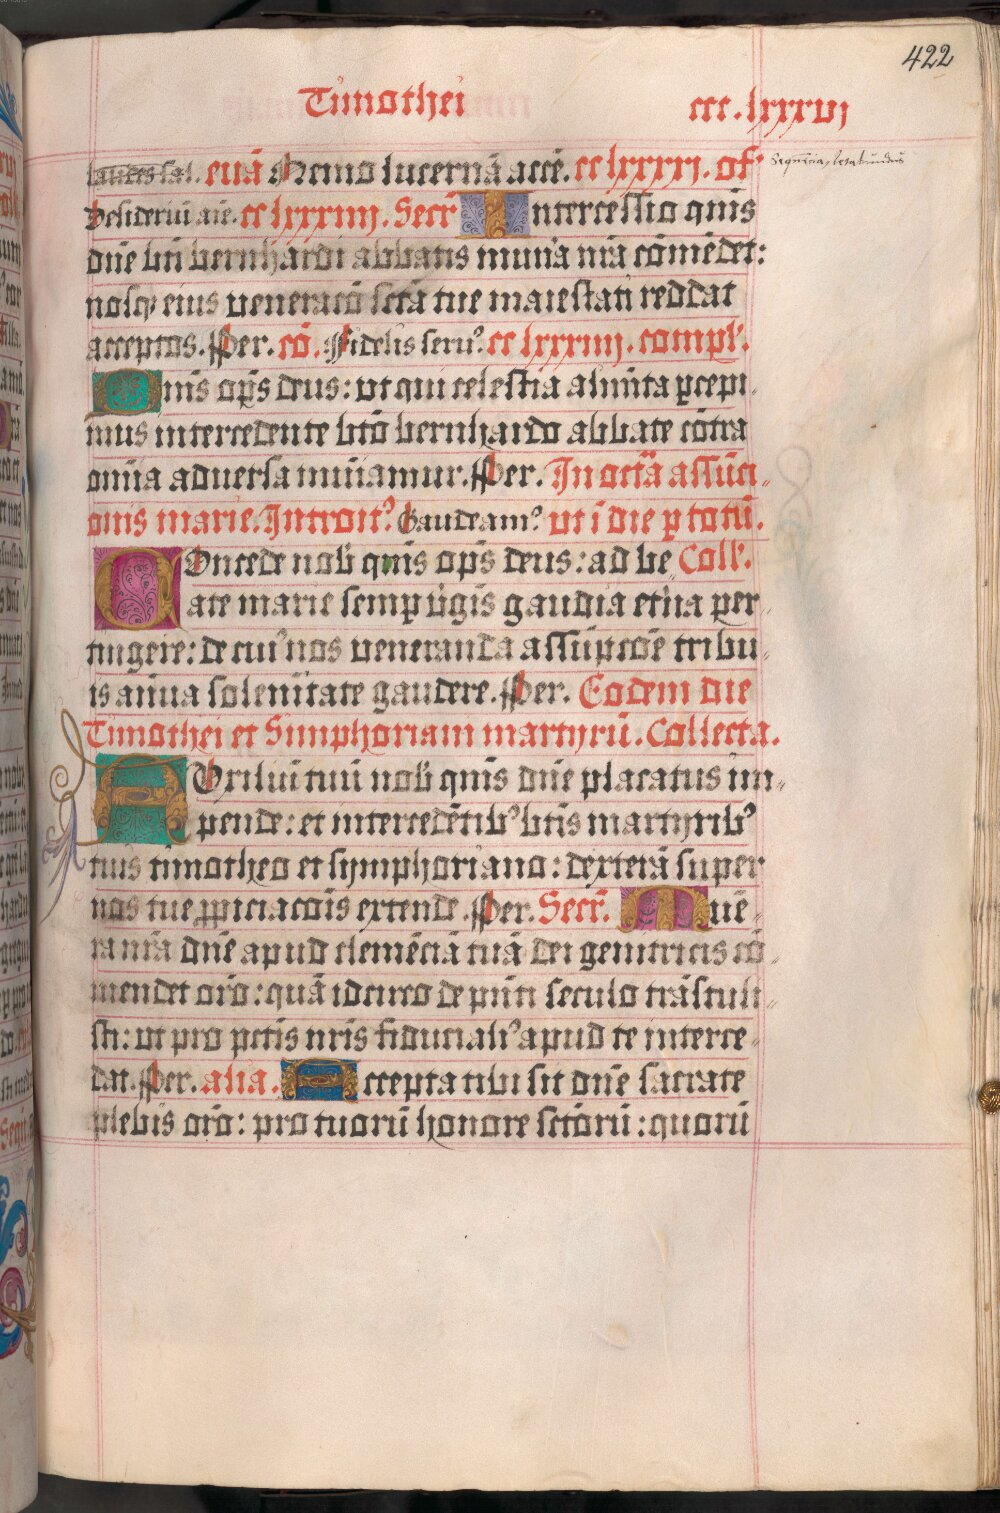 422
Timothei ccc.lxxxvj
laudes sal. euā Nemo lucernā accē. cc lxxxxj. of᷒ Sequēcia, letabundus
Desideriū aīe. cc lxxxiiij. Secr̄ Intercessio quīs
dn̄e bt̄i bernhardi abbatis mun̄a nr̄a cōmēdet:
nosqꝫ eius veneratō sctā tue maiestati reddat
acceptos. Per. cō. Fidelis seruꝰ. cc lxxxiiij. compl̄.
Om̄īs op̄s deus: vt qui celestia alimēta ꝑcepi⸗
mus intercedente btō bernhardo abbate cōtra
om̄ia aduersa muniamur. Per. In octā assūcti⸗
onis marie. Introitꝰ Gaudeamꝰ vt ī die ꝑ totū.
Concede nob̄ qīs op̄s deus: ad be Coll̄.
ate marie semꝑ v̄gīs gaudia etn̄a per⸗
tingere: de cuiꝰ nos veneranda assūptōe tribu⸗
is an̄ua solenitate gaudere. Per. Eodem die
Timothei et Simphoriani martyrū. Collecta.
Auxiliū tuū nob̄ quīs dn̄e placatus im⸗
pende: et intercedētibꝰ btīs martyribꝰ
tuis timotheo et symphoriano: dexterā super
nos tue ꝓpiciacōis extende. Per. Secr̄. Munē⸗
ra nr̄a dn̄e apud clemēciā tuā dei genitricis cō⸗
mendet or̄o: quā idcirco de pn̄ti seculo trāstuli⸗
sti: vt pro pctīs nr̄is fiducialiꝰ apud te interce⸗
dat. Per. alia. Accepta tibi sit dn̄e sacrate
plebis or̄o: pro tuorū honore sctorū: quorū